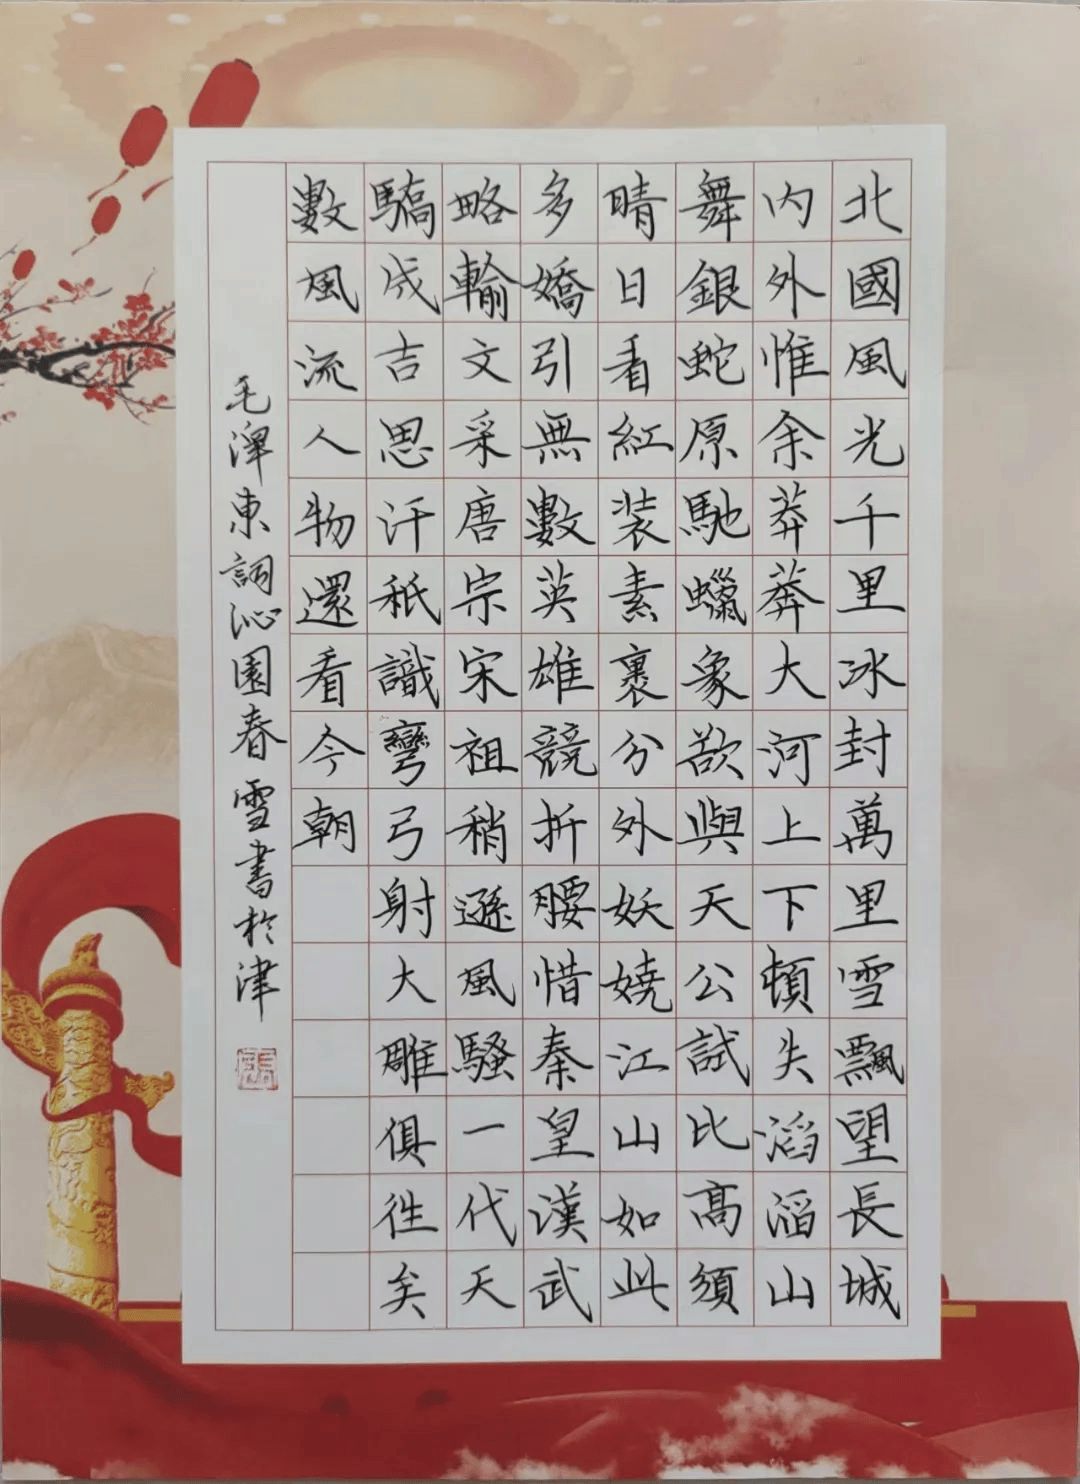 北國風光千里冰封萬里雪飄望長城
内外惟余莽莽大河上下頓失滔滔山
舞銀蛇原馳蠟象欲與天公試比高須
晴日看紅装素裹分外妖嬈江山如此
多嬌引無數英雄競折腰惜秦皇漢武
略輸文采唐宗宋祖稍遜風騷一代天
驕成吉思汗祇識彎弓射大雕俱往矣
數風流人物還看今朝
毛澤東詞沁園春雪書於津